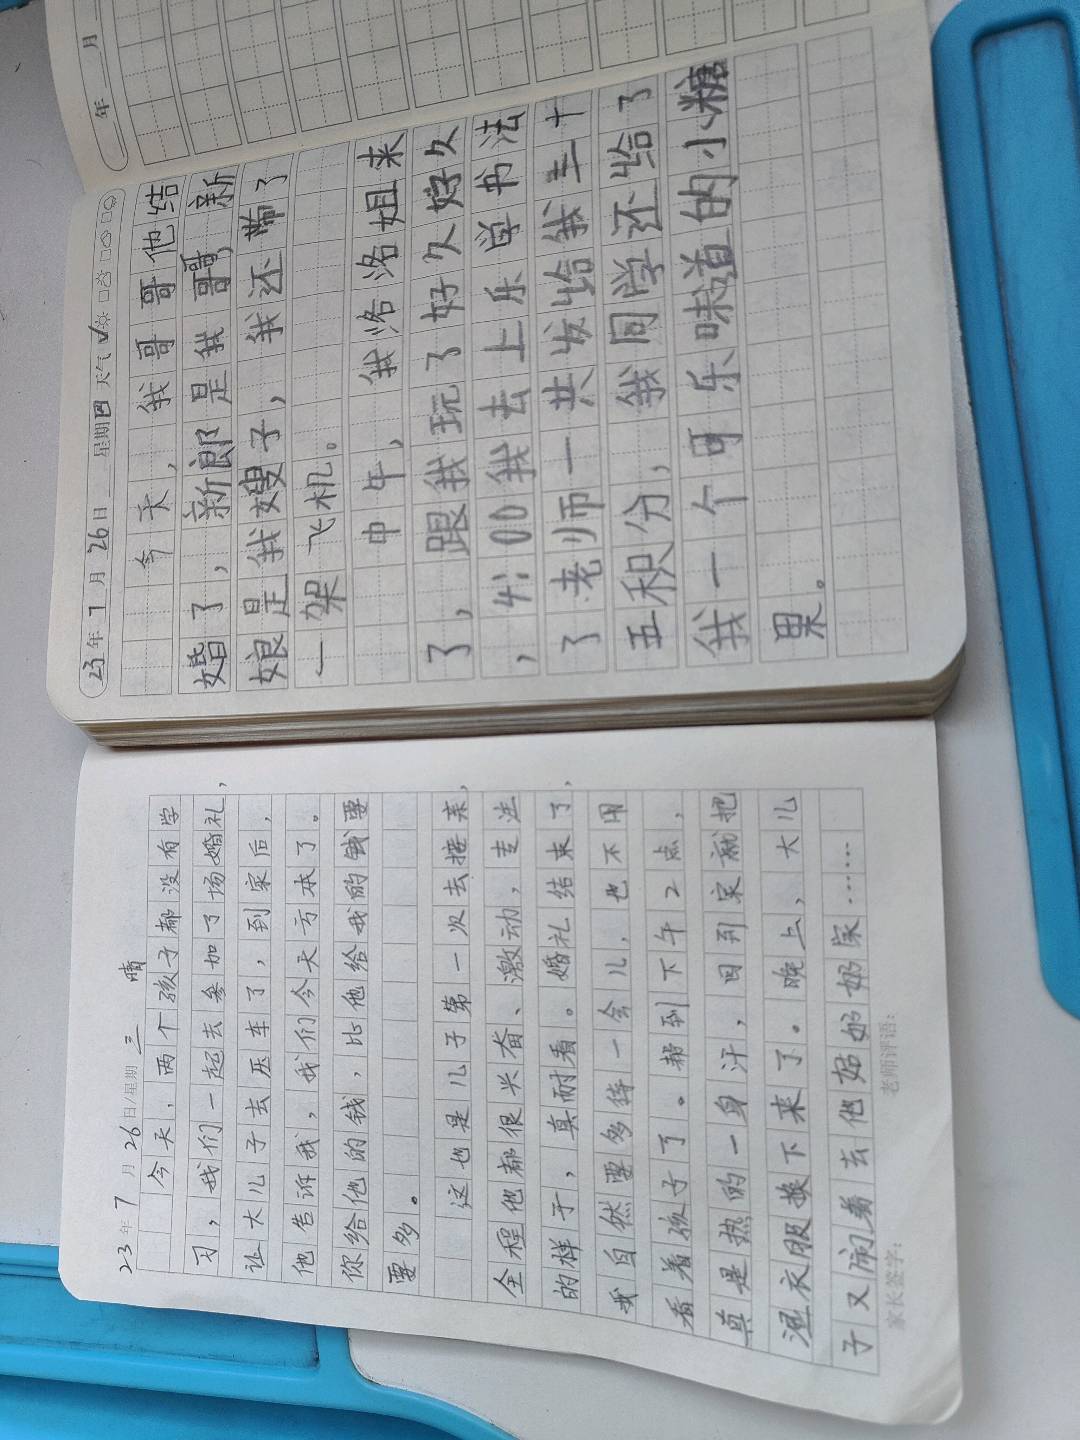 23年7月26日/星期三 晴
今天,两个孩子都没有学
习,我们一起去参加了场婚礼,
让大儿子去压车了,到家后,
他告诉我,我们今天亏本了。
你给他的钱,比他给我的钱要
要多。
这也是儿子第一次去接亲,
全程他都很兴奋、激动,走法
的样子,真耐看。婚礼结束了,
我自然要多待一会儿,也不用
看着孩子了。帮到下午2点,
真是热的一身汗,回到家就把
湿衣服换下来了。晚上,大儿
子又闹着去他姑奶奶家……
家长签字: 老师评语:
23年7月26日 星期四 天气
今天,我哥哥他结
婚了,新郎是我哥哥,新
娘是我嫂子,我还带了
一架飞机。
中午,我洛洛姐来
了,跟我玩了好久好久
,4:00我去上乐学书法
了老师一共发给我三十
五积分,我同学还给了
我一个可乐味道的小糖
果。
年 月